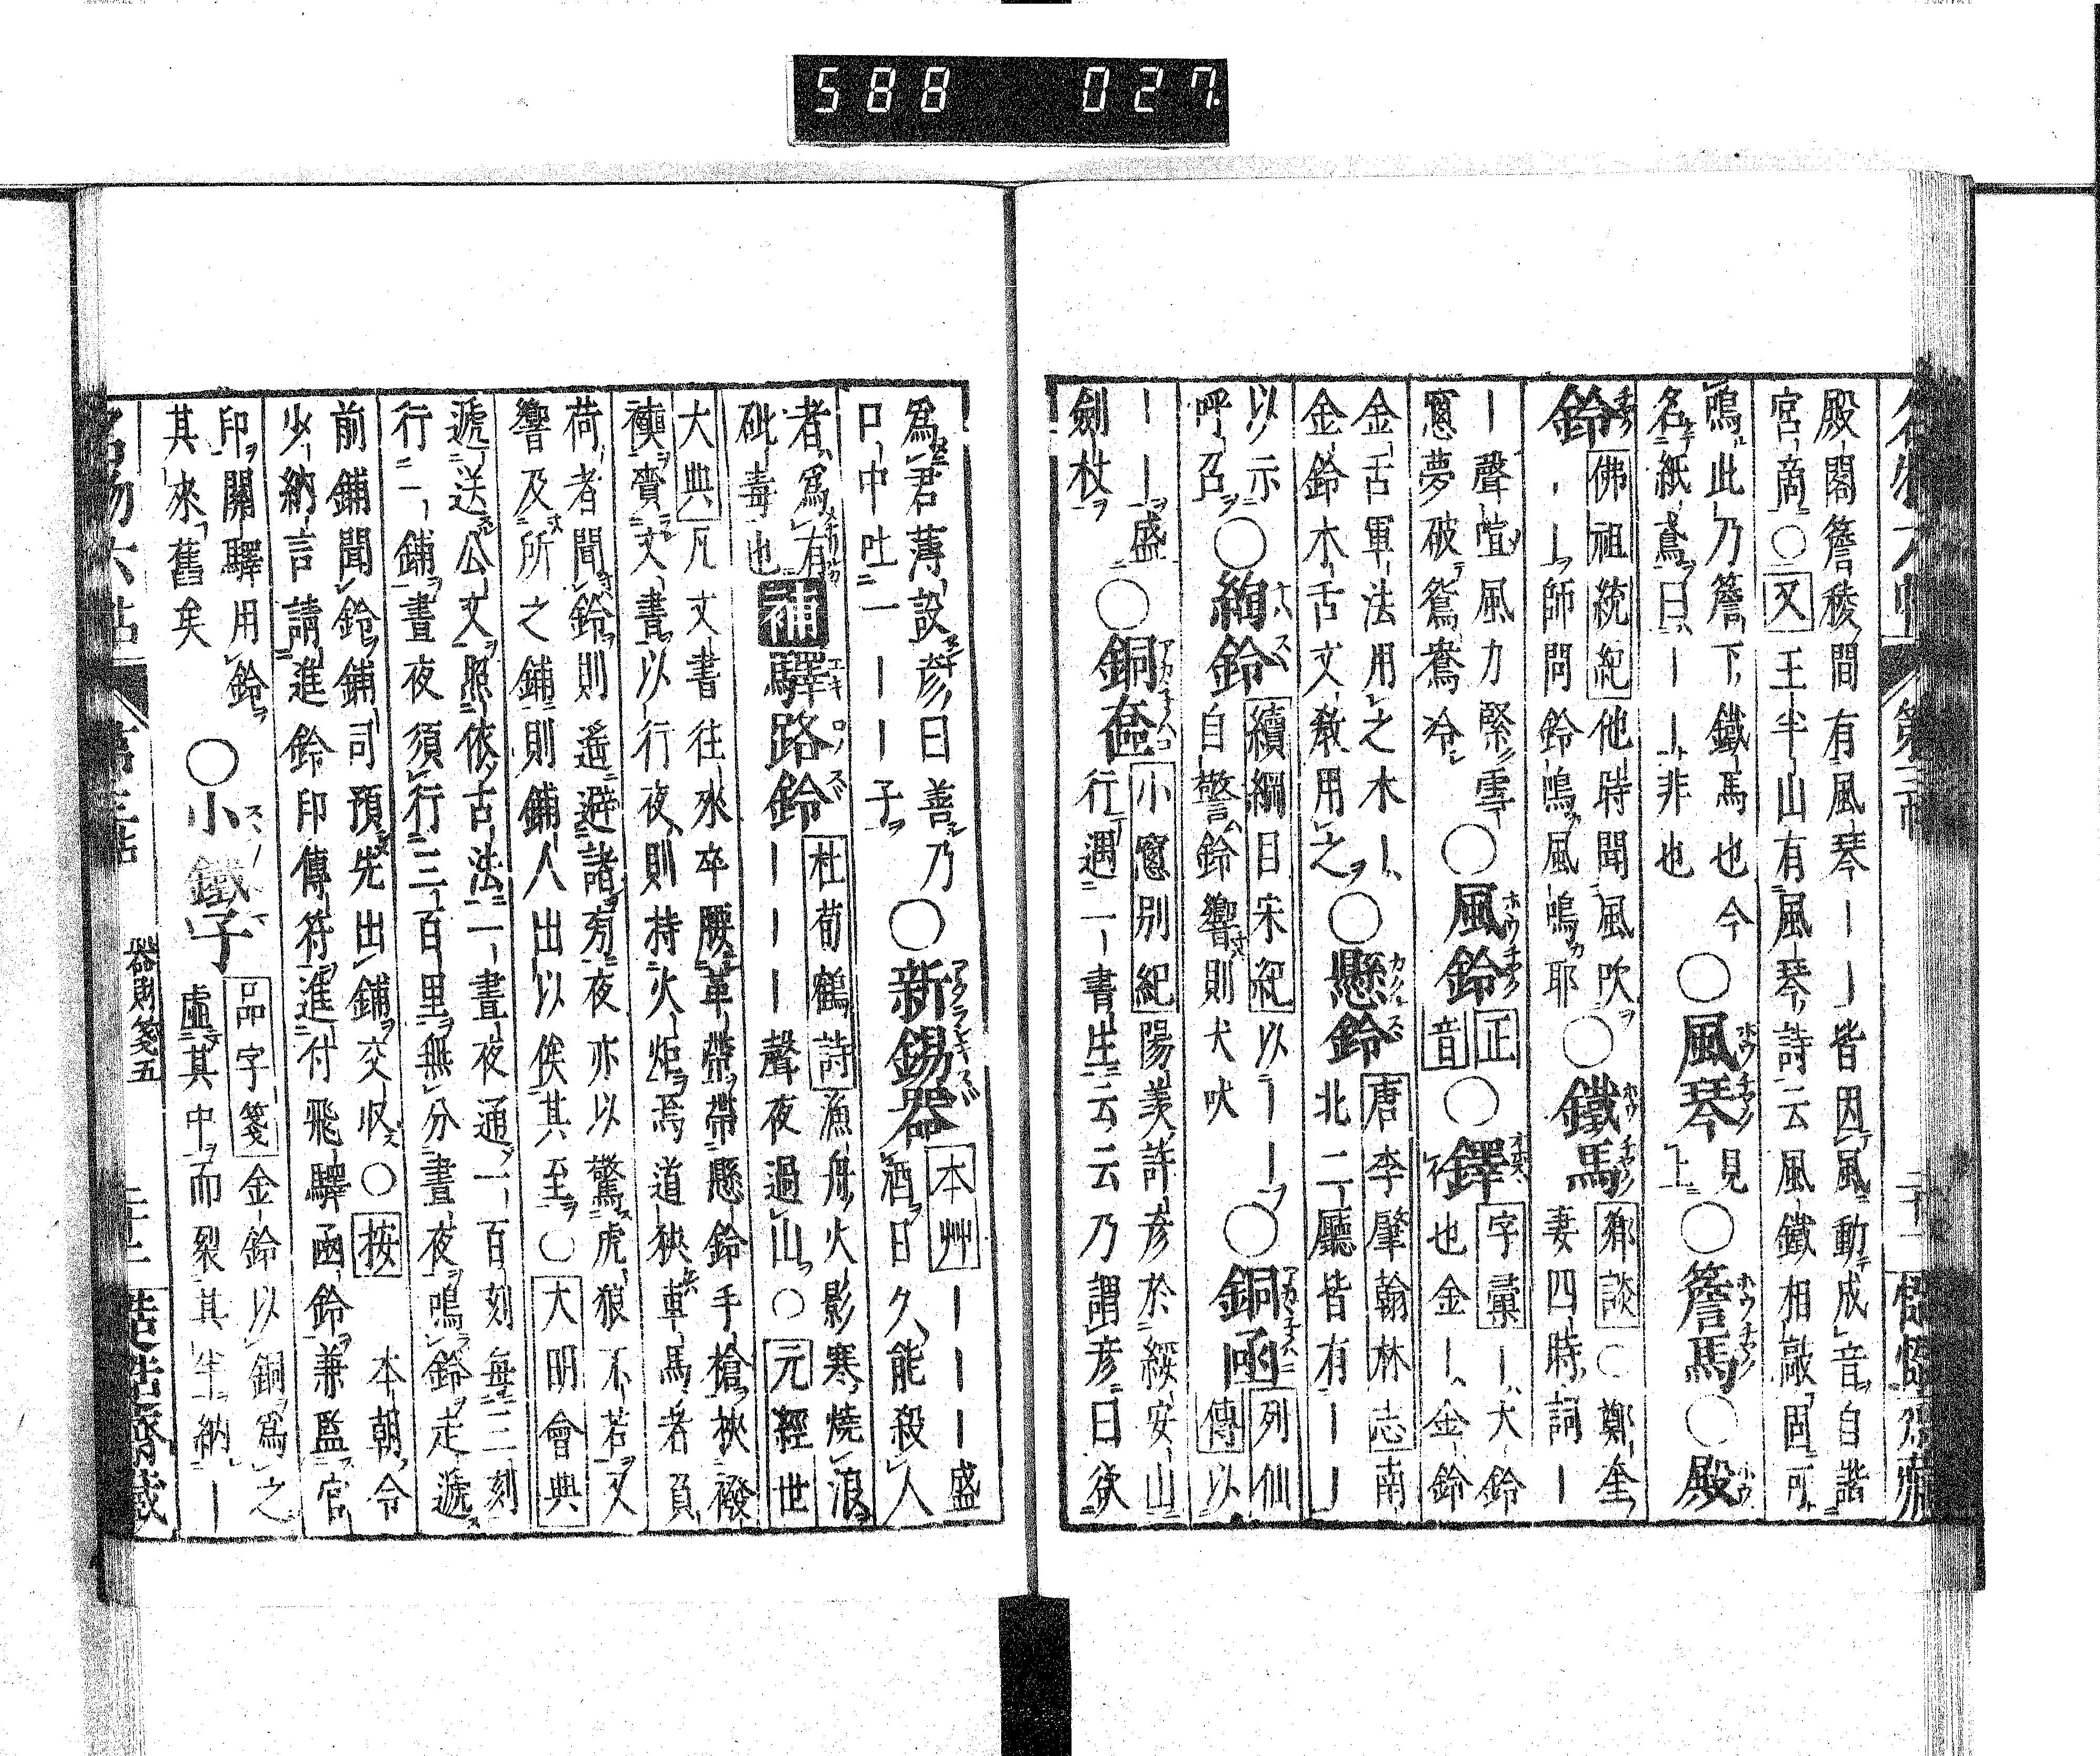 588 027.
殿閣簷稜間有風琴｜｜皆因風動成音自諧
宮商○又王半山有風琴詩云風鐵相敲固可
鳴此乃簷下鐵馬也今
名紙鳶曰｜｜非也
○風琴見上○簷馬○殿
鈴
佛祖統紀他時聞風吹
｜｜師問鈴鳴風鳴耶
○鐵馬
鄰談○鄭奎
妻四時詞｜
｜聲喧風力緊雪
窓夢破鴛鴦冷
○風鈴正音○鐸
字彙｜大鈴
也金｜金鈴
金舌軍法用之木｜
金鈴木舌文教用之
○懸鈴
唐李肇翰林志南
北二廳皆有｜｜
以示
呼召
○絢鈴
續綱目宋紀以｜｜
自警鈴響則犬吠
○銅函
列仙
傳以
｜｜盛
劍杖
○銅䇰
小窓別紀陽羨許彥於綏安山
行遇一書生云云乃謂彥曰欲
爲君薄設彥曰善乃
口中吐一｜｜子
○新錫器
本艸｜｜｜盛
酒日久能殺人
者爲有
砒毒也
補
驛路鈴
杜荀鶴詩漁舟火影寒燒浪
｜｜｜聲夜過山○元經世
大典凡文書往來卒腰革帶帶懸鈴手槍挾襏
襫賫文書以行夜則持火炬焉道狹車馬者負
荷者聞鈴則遙避諸旁夜亦以驚虎狼不若又
響及所之鋪則鋪人出以俟其至○大明會典
遞送公文照依古法一晝夜通一百刻每三刻
行一鋪晝夜須行三百里無分晝夜鳴鈴走遞
前鋪聞鈴鋪司預先出鋪交収○按本朝令
少納言請進鈴印傳符進付飛驛函鈴兼監官
印關驛用鈴
其來舊矣
○小鐵子
品字箋金鈴以銅爲之
虛其中而裂其半納｜
器財箋五